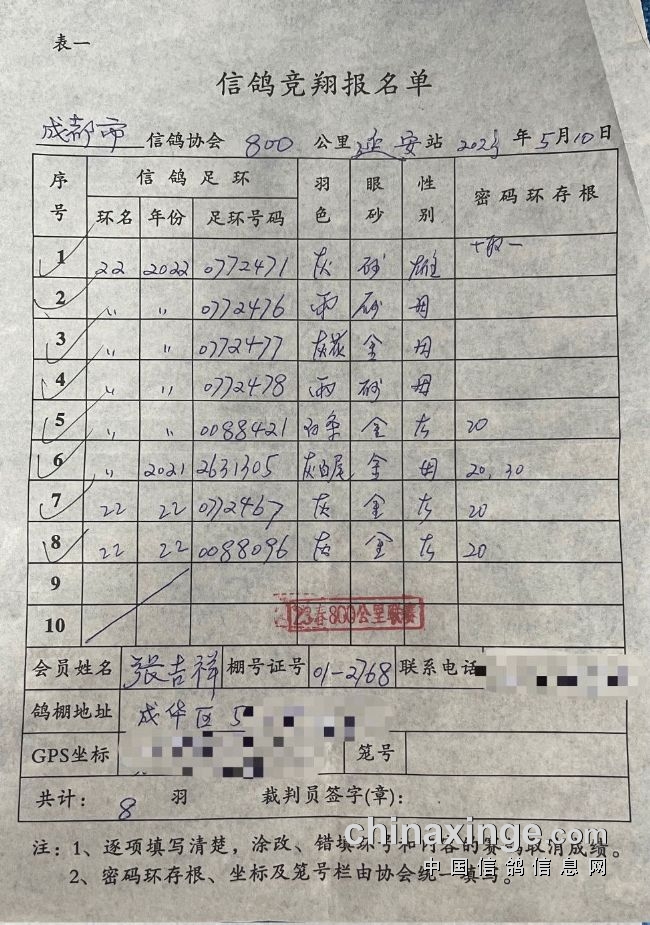 表一
信鸽竞翔报名单
成都市 信鸽协会 800 公里 延安 站 2023 年 5 月 10 日
序号 信鸽足环 羽色 眼砂 性别 密码环存根
环名 年份 足环号码
1 22 2022 0772471 灰 砂 雄
2 〃 〃 0772476 雨 砂 母
3 〃 〃 0772477 灰花 金 母
4 〃 〃 0772478 雨 砂 母
5 〃 〃 0088421 金 20
6 〃 2021 2631305 灰白尾 金 母 20, 30
7 22 22 0772467 灰 金 20
8 22 22 0088096 灰 金 20
9
10
23春800公里联赛
会员姓名 张吉祥 棚号证号 01-2768 联系电话
鸽棚地址 成华区 5
GPS坐标 笼号
共计: 8 羽 裁判员签字(章):
注: 1、逐项填写清楚, 涂改、错填环号和内容的赛鸽取消成绩。
2、密码环存根、坐标及笼号栏由协会统一填写。
chinaxinge.com
中国信鸽信息网